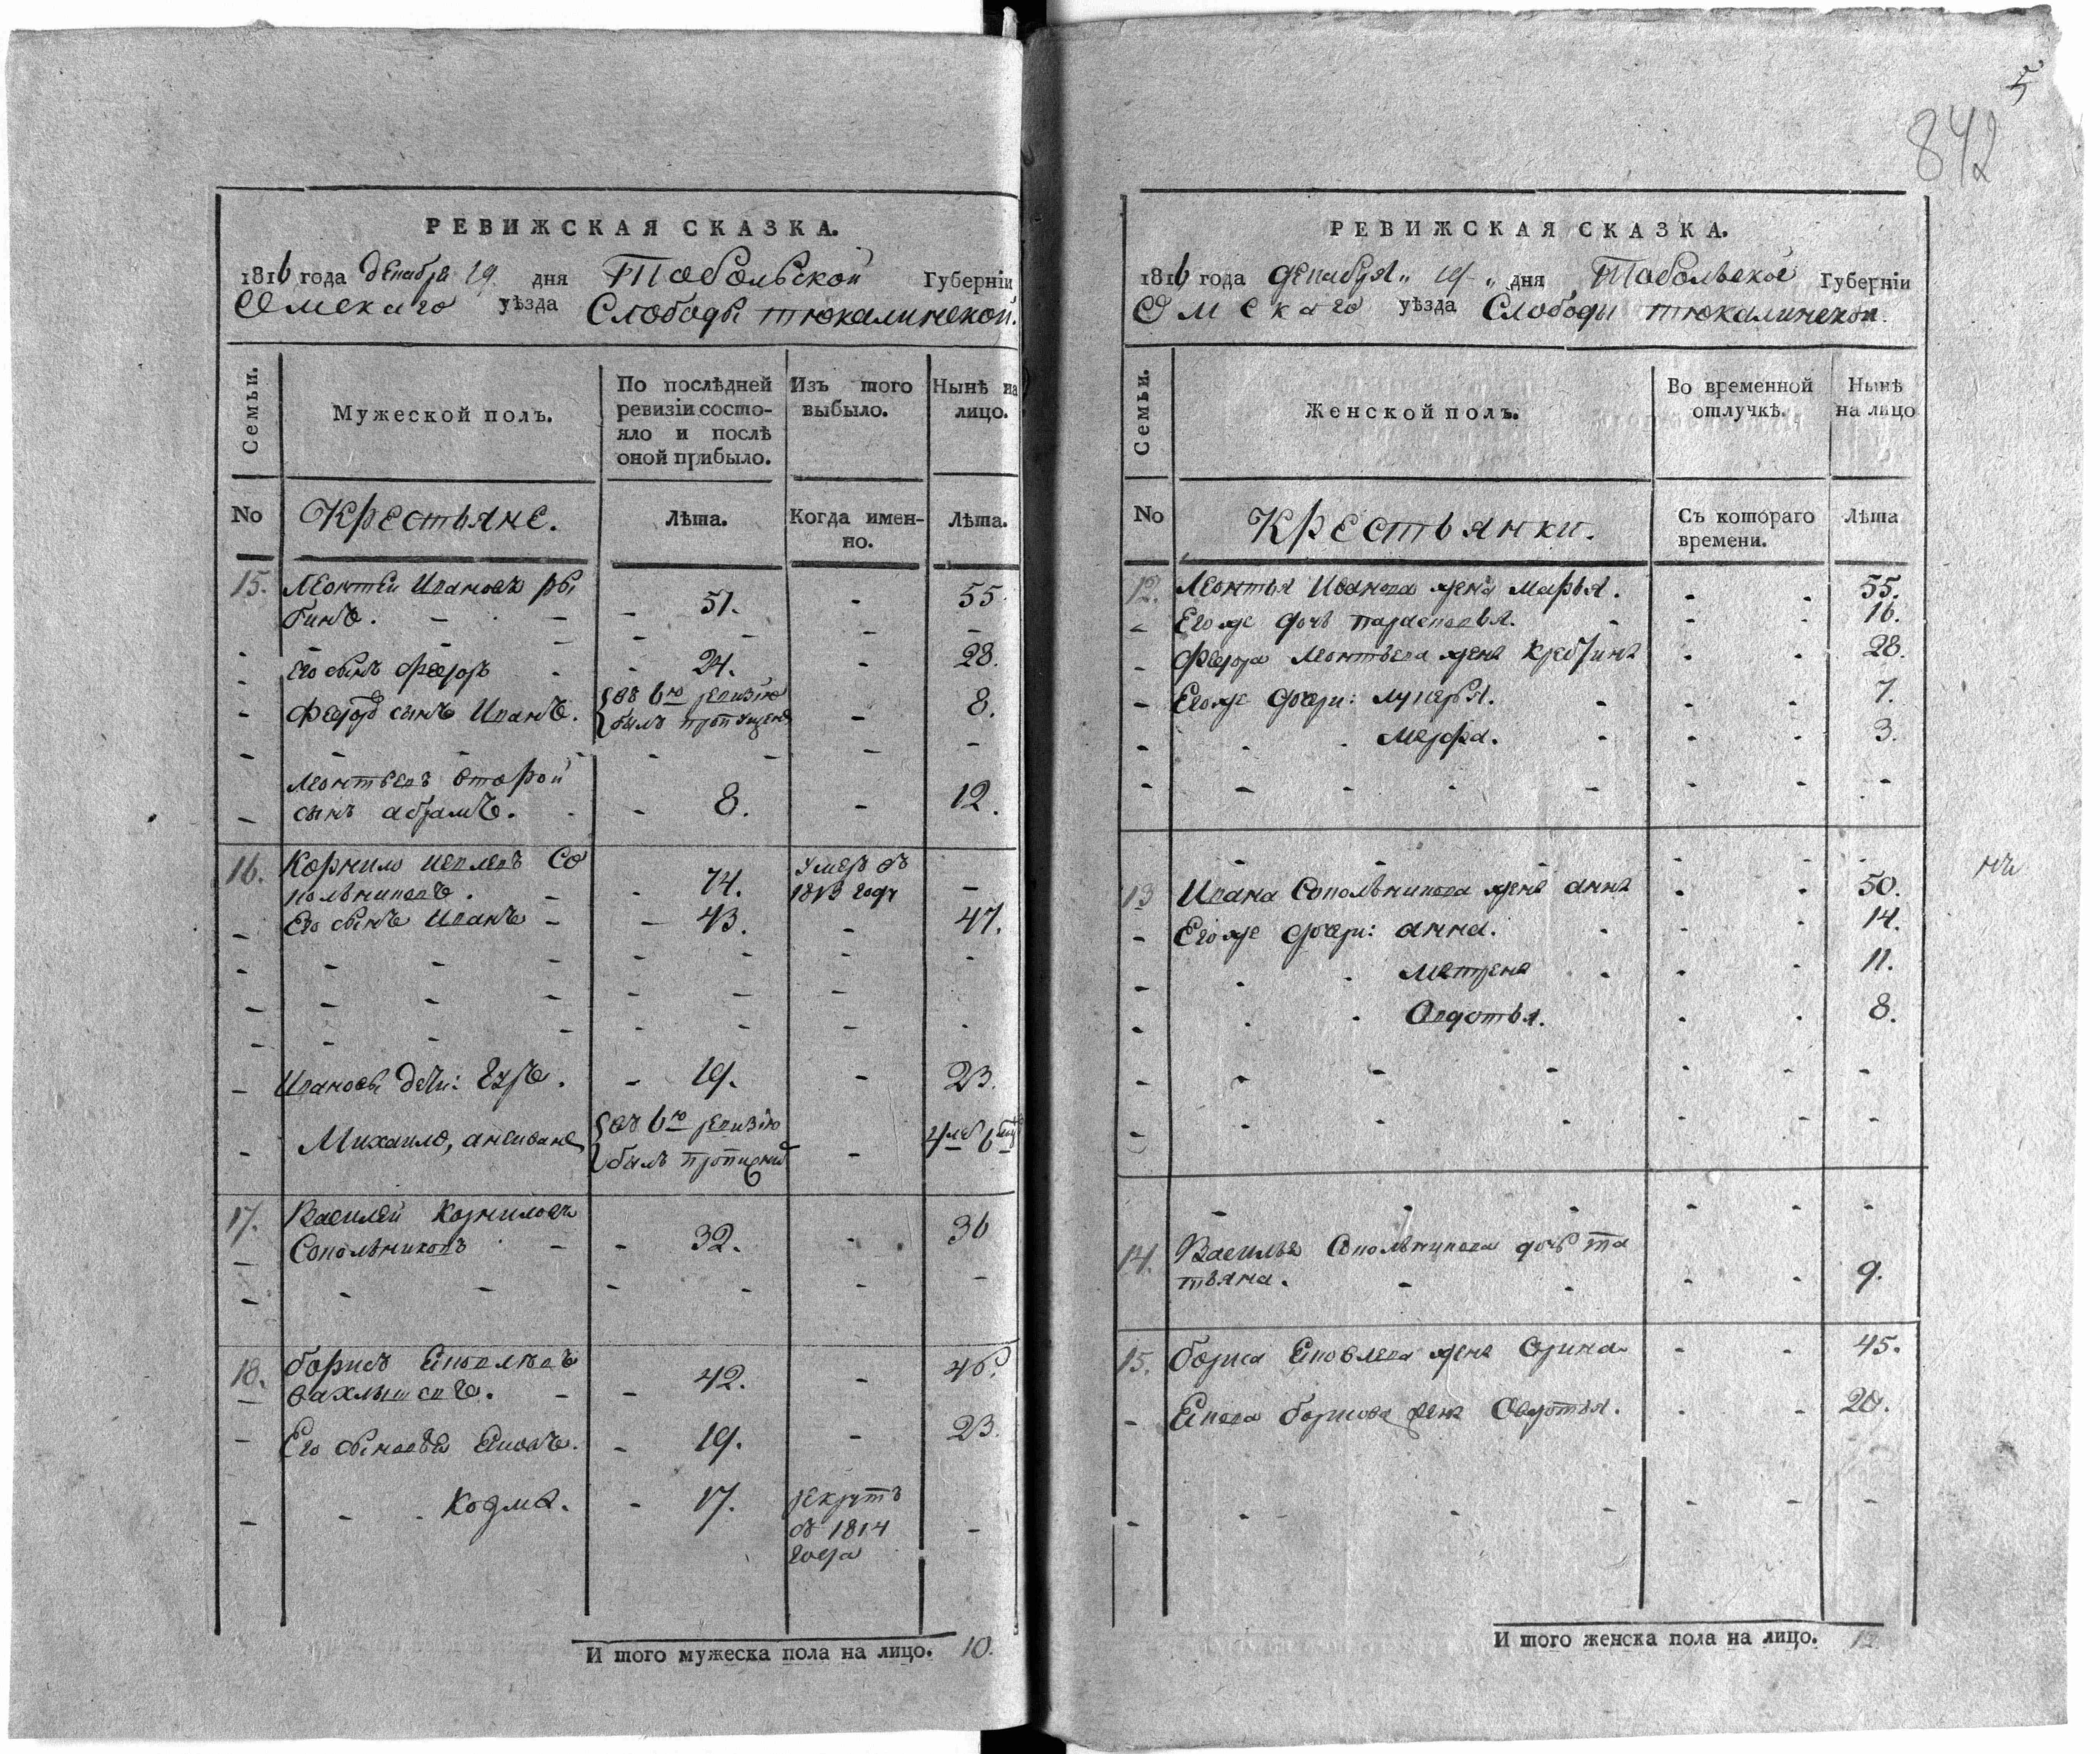 РЕВИЖСКАЯ СКАЗКА.
1816 года декабря 19 дня Тобольской Губерніи
Омскаго уѣзда Слободы тюкалинской.
Семьи.
Мужеской полъ.
По послѣдней
ревизіи состо-
яло и послѣ
оной прибыло.
Изъ того
выбыло.
Нынѣ на
лицо.
No
Крестьяне.
Лѣта.
Когда имен-
но.
Лѣта.
15. Леонтей Ивановъ ря
бинъ. - 51. - 55
Его сынъ Федоръ - 24. - 28.
Федора сынъ Иванъ. въ 6ю ревизію - 8.
былъ пропущенъ
Леонтьевъ второй
сынъ абрамъ. - 8. - 12.
16. Корнило Со 74. умеръ въ -
кольниковъ. 1813 году
Его сынъ Иванъ - 43. - 47.
Ивановы дети: Егоръ. - 19. - 23.
Михаило, въ 6ю ревизію
былъ -
17. Василей Корниловъ
Сокольниковъ - 32. - 36
18. борисъ Яковлевъ
42. - 46.
Его сыновья Яковъ. - 19. - 23.
Козма. - 17. рекрутъ
въ 1814 -
года
И того мужеска пола на лицо. 10.
5
842
РЕВИЖСКАЯ СКАЗКА.
1816 года декабря 19 дня Тобольской Губерніи
Омскаго уѣзда Слободы тюкалинской
Семьи.
Женской полъ.
Во временной
отлучкѣ.
Нынѣ
на лицо
No
Крестьянки.
Съ котораго
времени.
Лѣта
12. Леонтья Иванова жена Марья. - - 55.
Его же дочь парасковья. - - 16.
Федора Леонтьева жена - - 28.
Его же дочери: лукерья. - - 7.
Марфа. - - 3.
13 Ивана Сокольникова жена анна - - 50.
Его же дочери: анна. - - 14.
Матрена - - 11.
Авдотья. - - 8.
14. Василья Сокольникова дочь та
тьяна. - - 9.
15. бориса Яковлева жена Орина - - 45.
Якова борисова жена Авдотья. - - 20.
И того женска пола на лицо. 12.